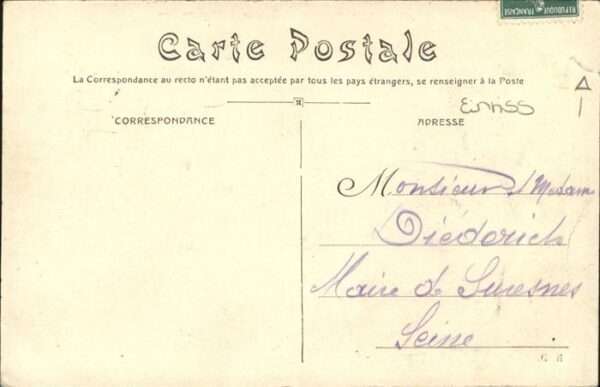 REPUBLIQUE FRANÇAISE
Carte Postale
La Correspondance au recto n'étant pas acceptée par tous les pays étrangers, se renseigner à la Poste
CORRESPONDANCE
ADRESSE
Monsieur & Madam
Diéderich
Maire de Suresnes
Seine